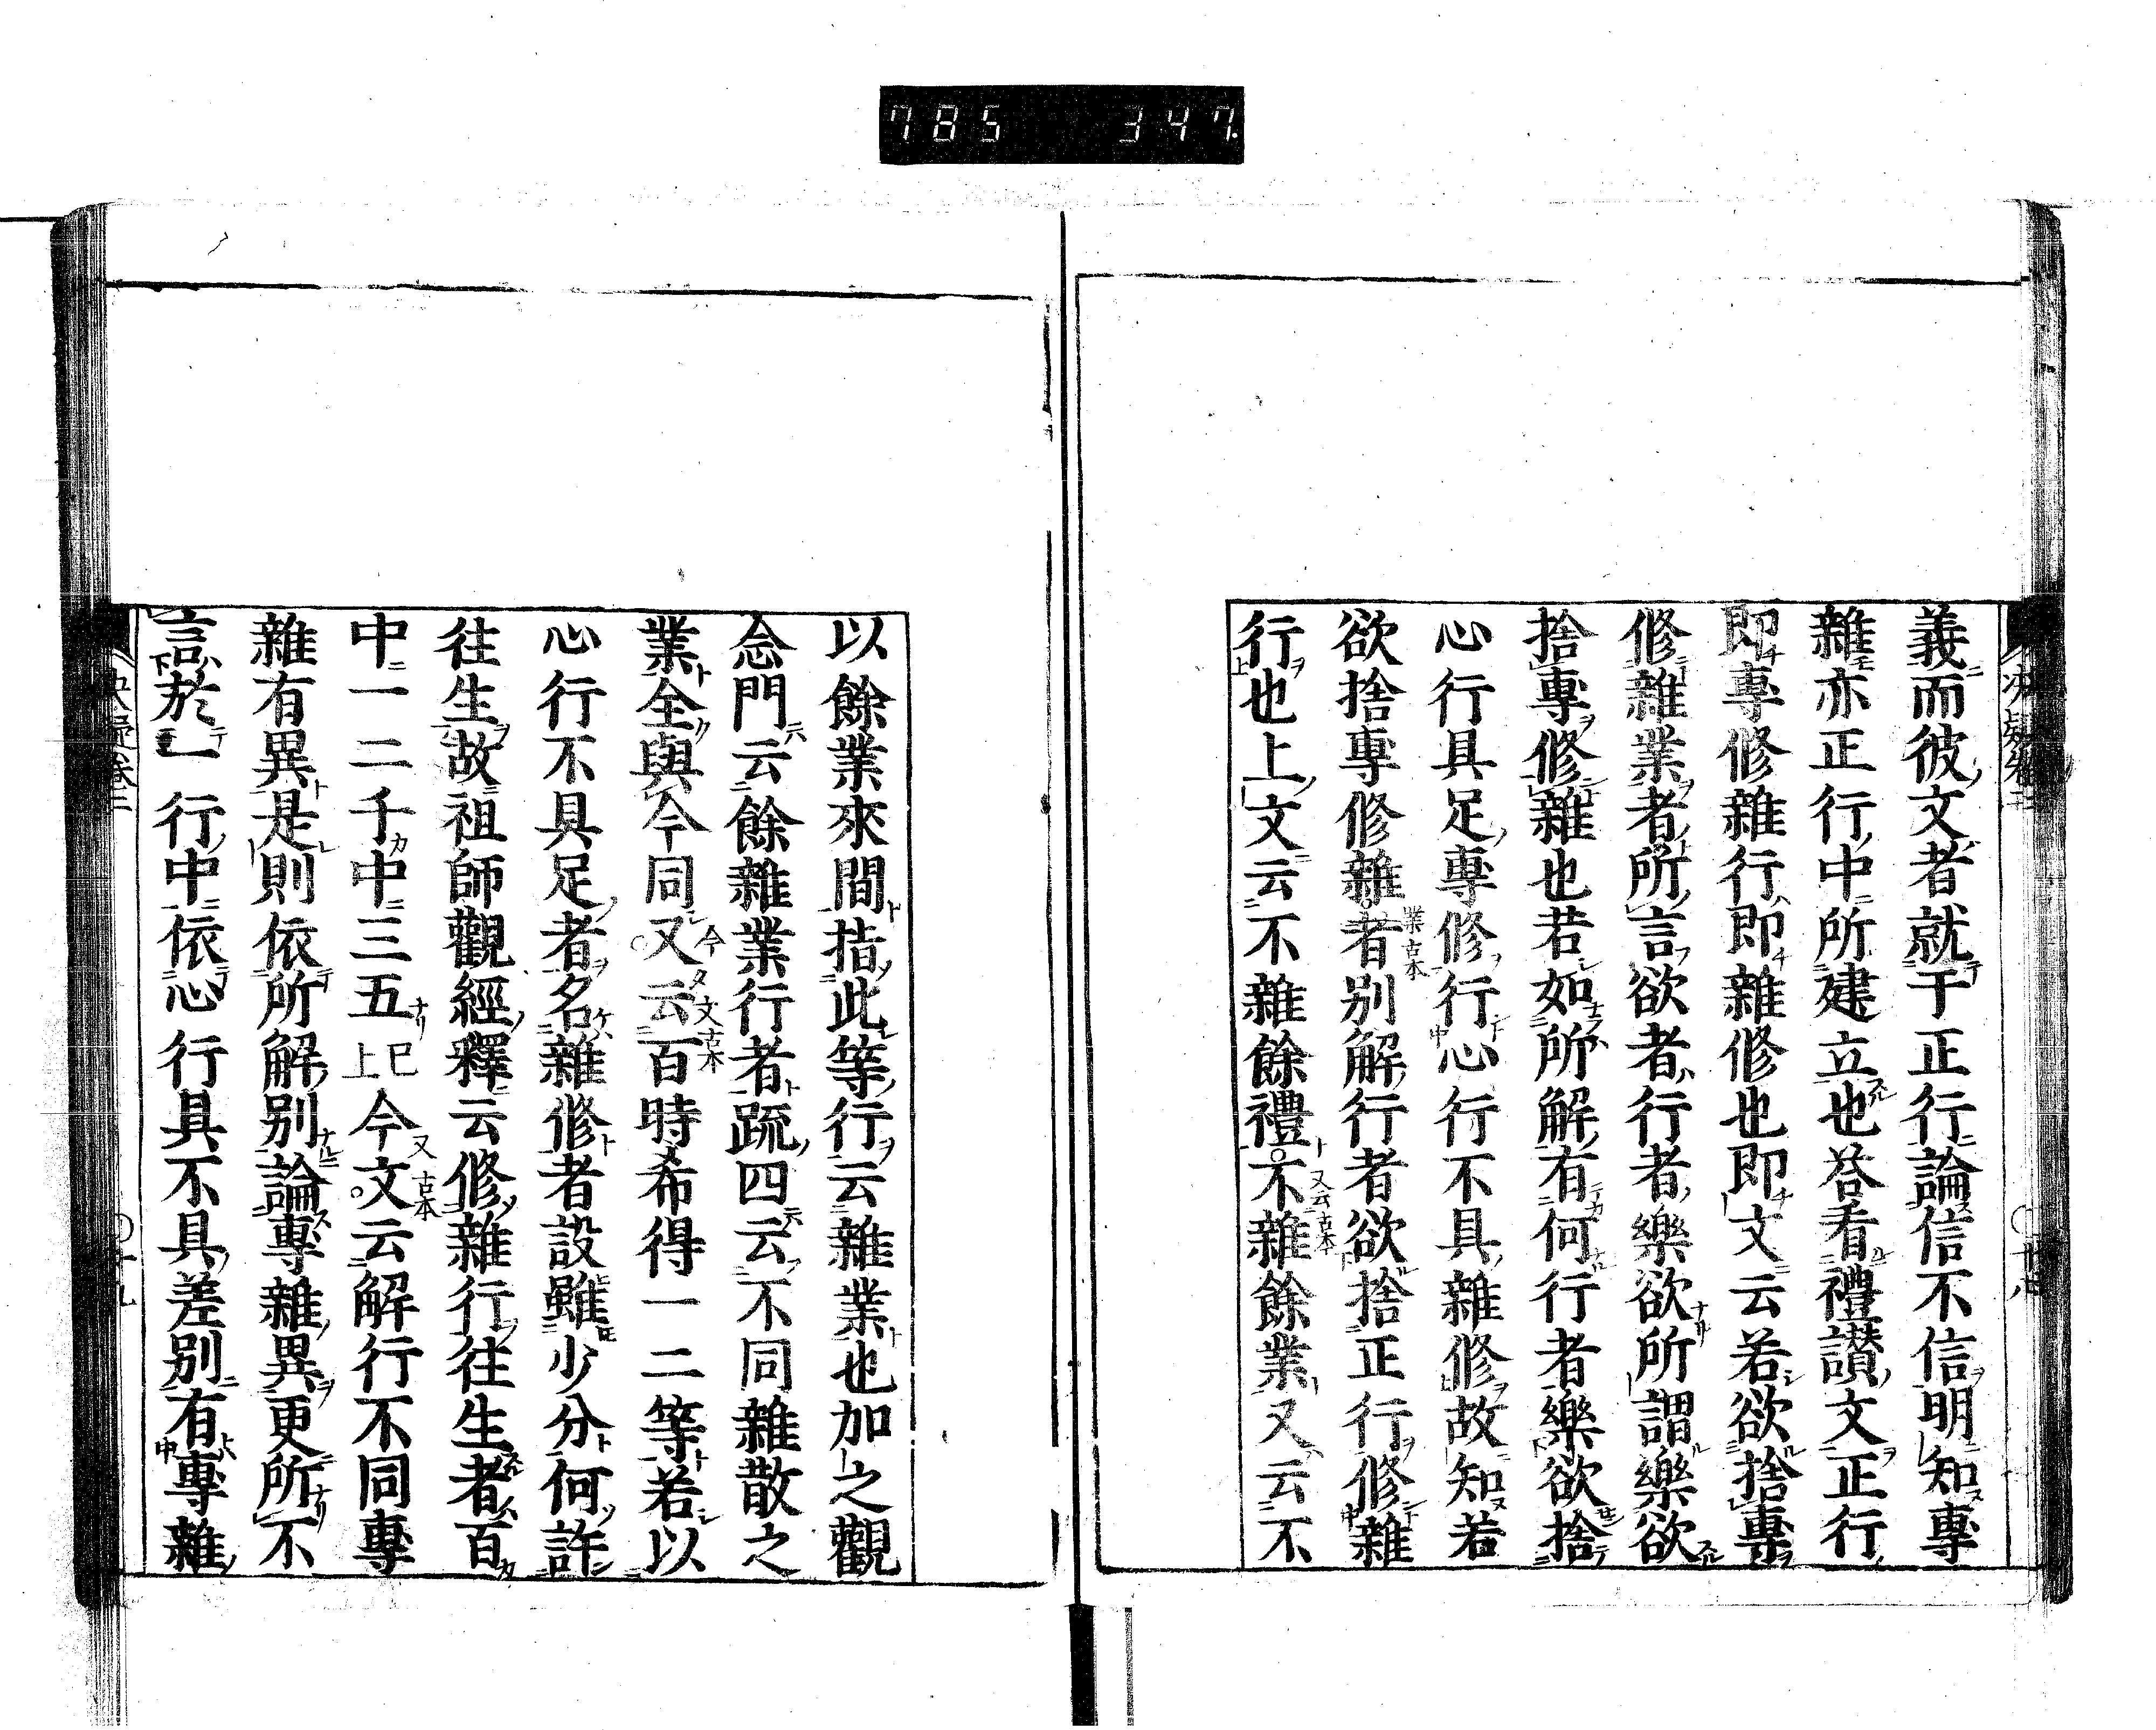 785 347
義而彼文者就于正行論信不信明知專
雜亦正行中所建立也答看禮讃文正行
即專修雜行即雜修也即文云若欲捨專
修雜業者所言欲者行者樂欲所謂樂欲
捨專修雜也若如所解有何行者樂欲捨
心行具足專修行心行不具雜修故知若
欲捨專修雜者別解行者欲捨正行修雜
業古本
行也上文云不雜餘禮不雜餘業又云不
又云古本
以餘業來間指此等行云雜業也加之觀
念門云餘雜業行者疏四云不同雜散之
業全與今同又云百時希得一二等若以
今文古本
心行不具足者名雜修者設雖少分何許
往生故祖師觀經釋云修雜行往生者百
中一二千中三五已上今文云解行不同專
又古本
雜有異是則依所解別論專雜異更所不
言於一行中依心行具不具差別有專雜